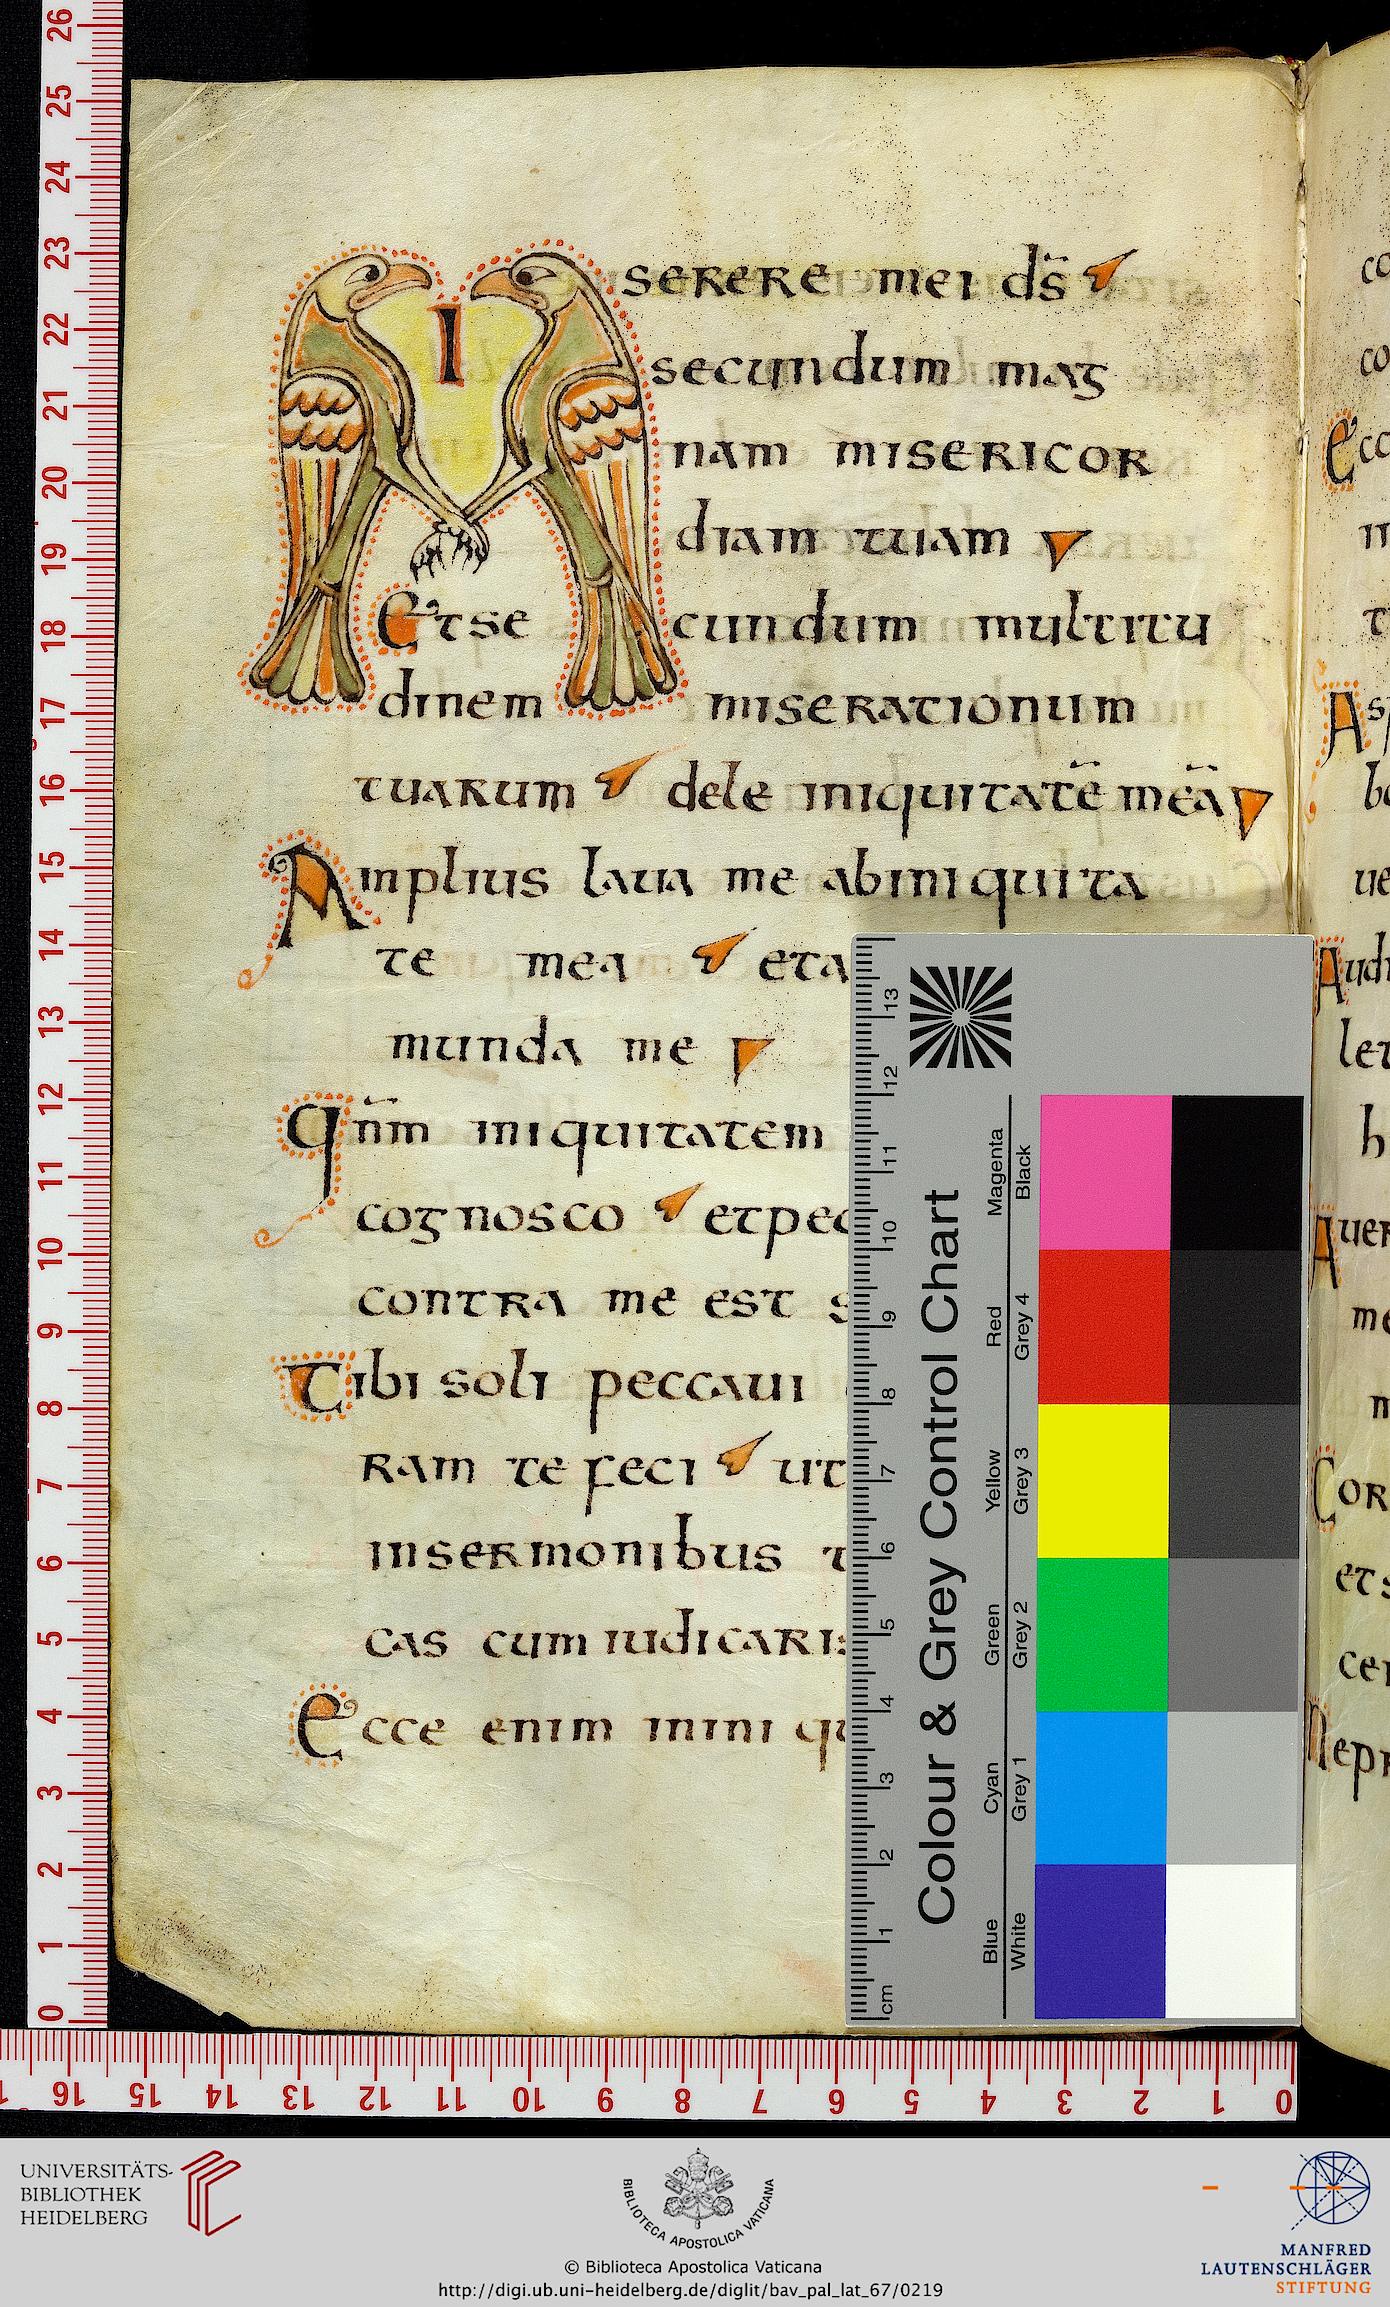 Miserere mei ds̄
secundum mag
nam misericor
diam tuam
Et secundum multitu
dinem miserationum
tuarum dele iniquitatē meā
Amplius laua me abiniquita
te mea eta
munda me
Qnm̄ iniquitatem
cognosco etpec
contra me est s
Tibi soli peccaui
ram te feci ut
insermonibus t
cas cum iudicaris
Ecce enim inini qu
co
co
Ecc
in
t
Asp
bo
ue
Audi
let
h
Auer
me
m
Cor
et s
cer
Nepr
26
25
24
23
22
21
20
19
18
17
16
15
14
13
12
11
10
9
8
7
6
5
4
3
2
1
0
16 15 14 13 12 11 10 9 8 7 6 5 4 3 2 1 0
Colour & Grey Control Chart
13
12
11
10
9
8
7
6
5
4
3
2
1
cm
Magenta Black
Red Grey 4
Yellow Grey 3
Green Grey 2
Cyan Grey 1
Blue White
UNIVERSITÄTS-
BIBLIOTHEK
HEIDELBERG
BIBLIOTECA APOSTOLICA VATICANA
© Biblioteca Apostolica Vaticana
http://digi.ub.uni-heidelberg.de/diglit/bav_pal_lat_67/0219
MANFRED
LAUTENSCHLÄGER
STIFTUNG